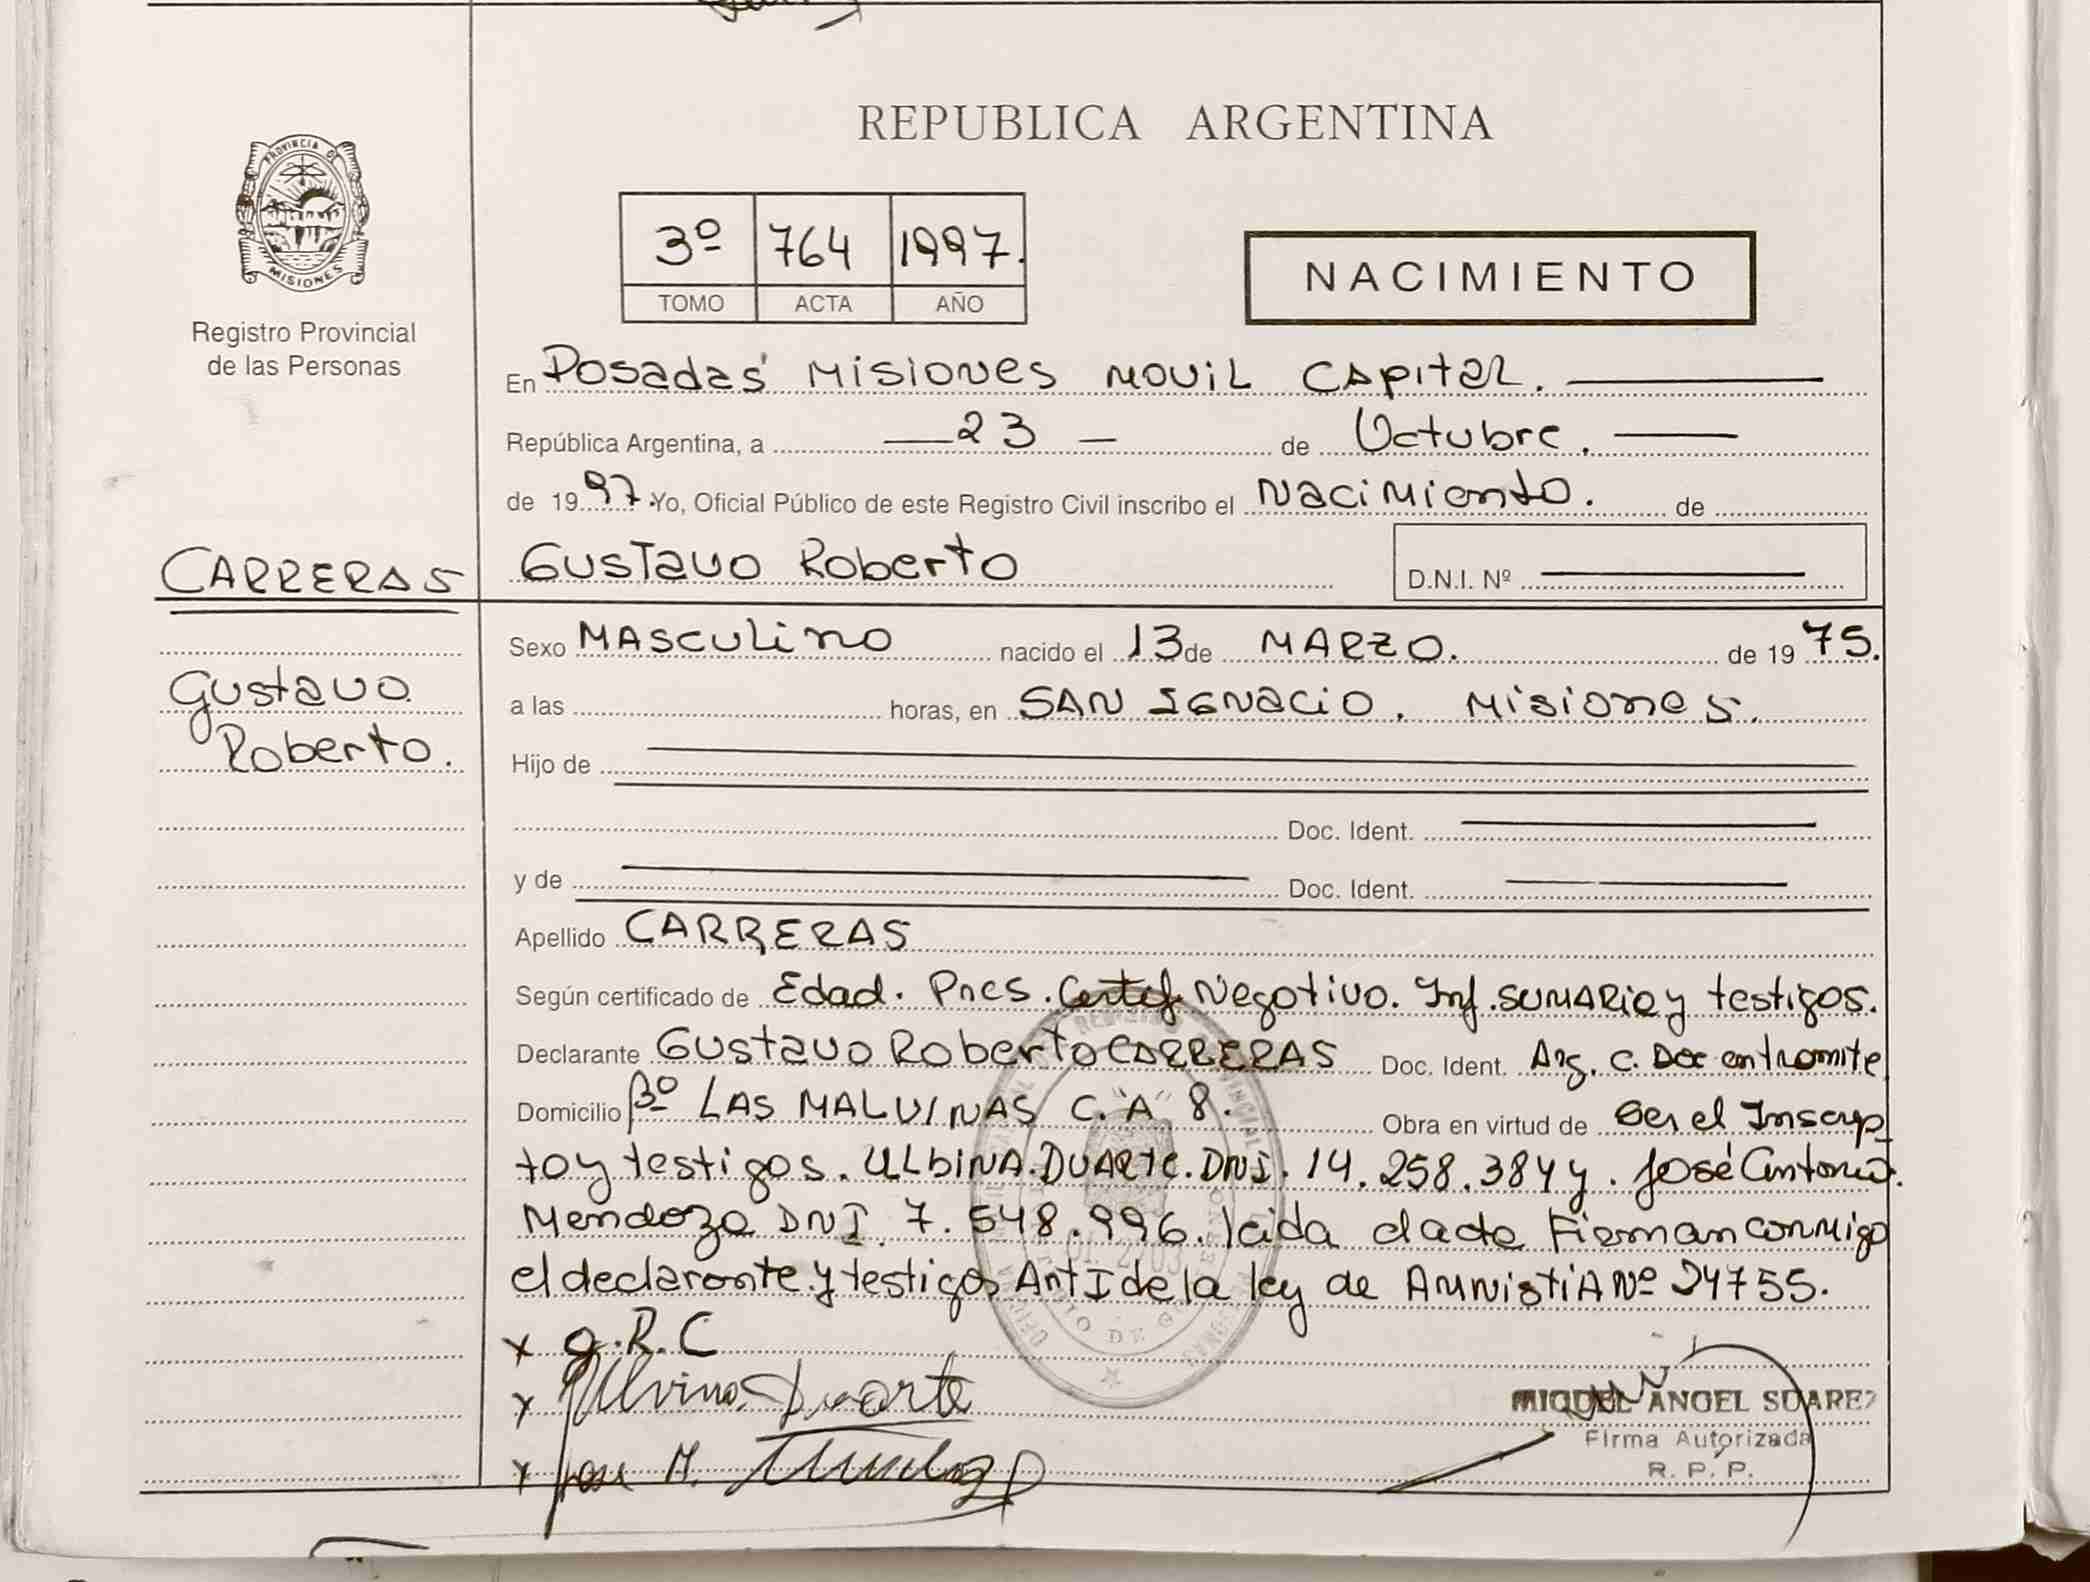 REPUBLICA ARGENTINA
PROVINCIA DE
MISIONES
Registro Provincial
de las Personas
3º 764 1997.
TOMO ACTA AÑO
NACIMIENTO
En Posadas Misiones Movil Capital.
República Argentina, a 23 de Octubre.
de 1997. Yo, Oficial Público de este Registro Civil inscribo el Nacimiento. de
CARRERAS
Gustavo Roberto D.N.I. Nº
Sexo MASCULINO nacido el 13 de MARZO. de 1975.
Gustavo
Roberto.
a las horas, en SAN IGNACIO. Misiones.
Hijo de
Doc. Ident.
y de Doc. Ident.
Apellido CARRERAS
Según certificado de Edad. Pres. Certif. Negativo. Inf. SUMARIO y testigos.
Declarante Gustavo Roberto CARRERAS Doc. Ident. Arg. C. Doc en tramite
Domicilio Bº LAS MALVINAS C. "A" 8. Obra en virtud de Ser el Inscrip
to y testigos. ULbINA. DUARTE. DNI. 14.258.384 y. José Antonio.
Mendoza DNI. 7.548.996. leida el acta Firman conmigo
el declarante y testigos Art I de la ley de AMNistiA Nº 24755.
x G.R.C
x Ulvina Duarte
x Jose A. Mendoza
MIGUEL ANGEL SUAREZ
Firma Autorizada
R. P. P.